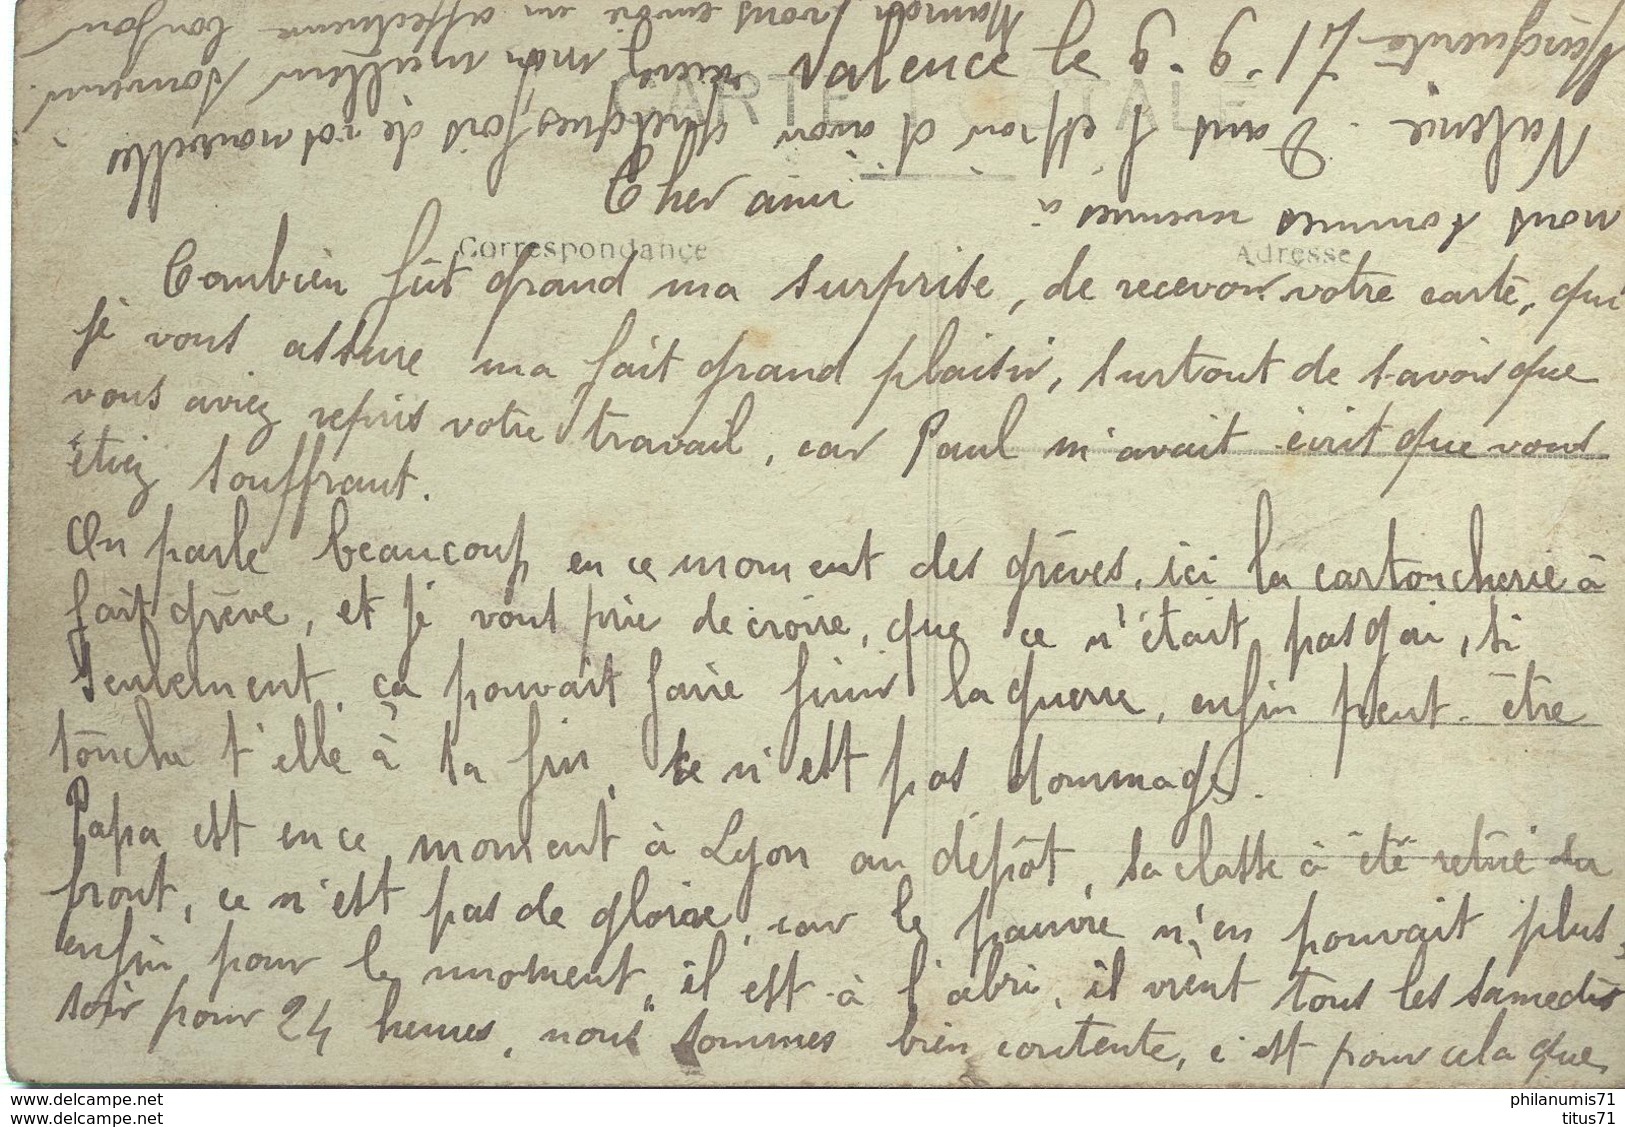 CARTE POSTALE
Correspondance
Adresse
Valence le 9.9.17
Cher ami
Combien fût grand ma surprise, de recevoir votre carte, qui
je vous assure ma fait grand plaisir, surtout de savoir que
vous aviez repris votre travail, car Paul m'avait écrit que vous
étiez souffrant.
On parle beaucoup en ce moment des grèves, ici la cartoucherie à
fait grève, et je vous prie de croire, que ce n'était pas gai, si
seulement, ça pouvait faire finir la guerre, enfin peut-être
touche t'elle à sa fin, ce n'est pas dommage.
Papa est en ce moment à Lyon au dépôt, sa classe à été retiré du
front, ce n'est pas de gloire, car le pauvre n'en pouvait plus,
enfin pour le moment, il est à l'abri, il vient tous les samedis
soir pour 24 heures, nous sommes bien contente, c'est pour cela que
nous sommes revenues à
Valence. Dans l'espoir d'avoir quelques fois de vos nouvelles
recevez mon meilleur souvenir.
Marguerite
Maman vous envoie un affectueux bonjour
www.delcampe.net
philanumis71
www.delcampe.net
titus71